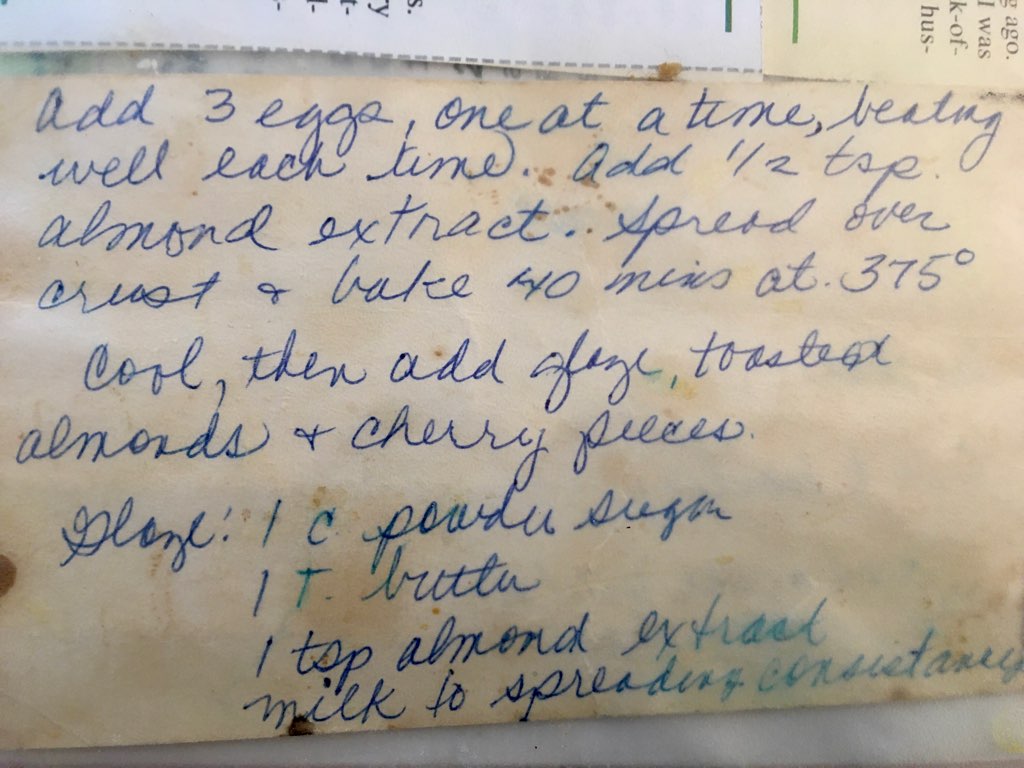 s.
ry
t-
l-
-
g ago.
I was
k-of-
hus-
add 3 eggs, one at a time, beating
well each time. add 1/2 tsp.
almond extract.. spread over
crust & bake 40 mins at. 375°
Cool, then add glaze, toasted
almonds & cherry pieces.
Glaze: 1 C. powder sugar
1 T. butter
1 tsp almond extract
milk to spreading consistancy